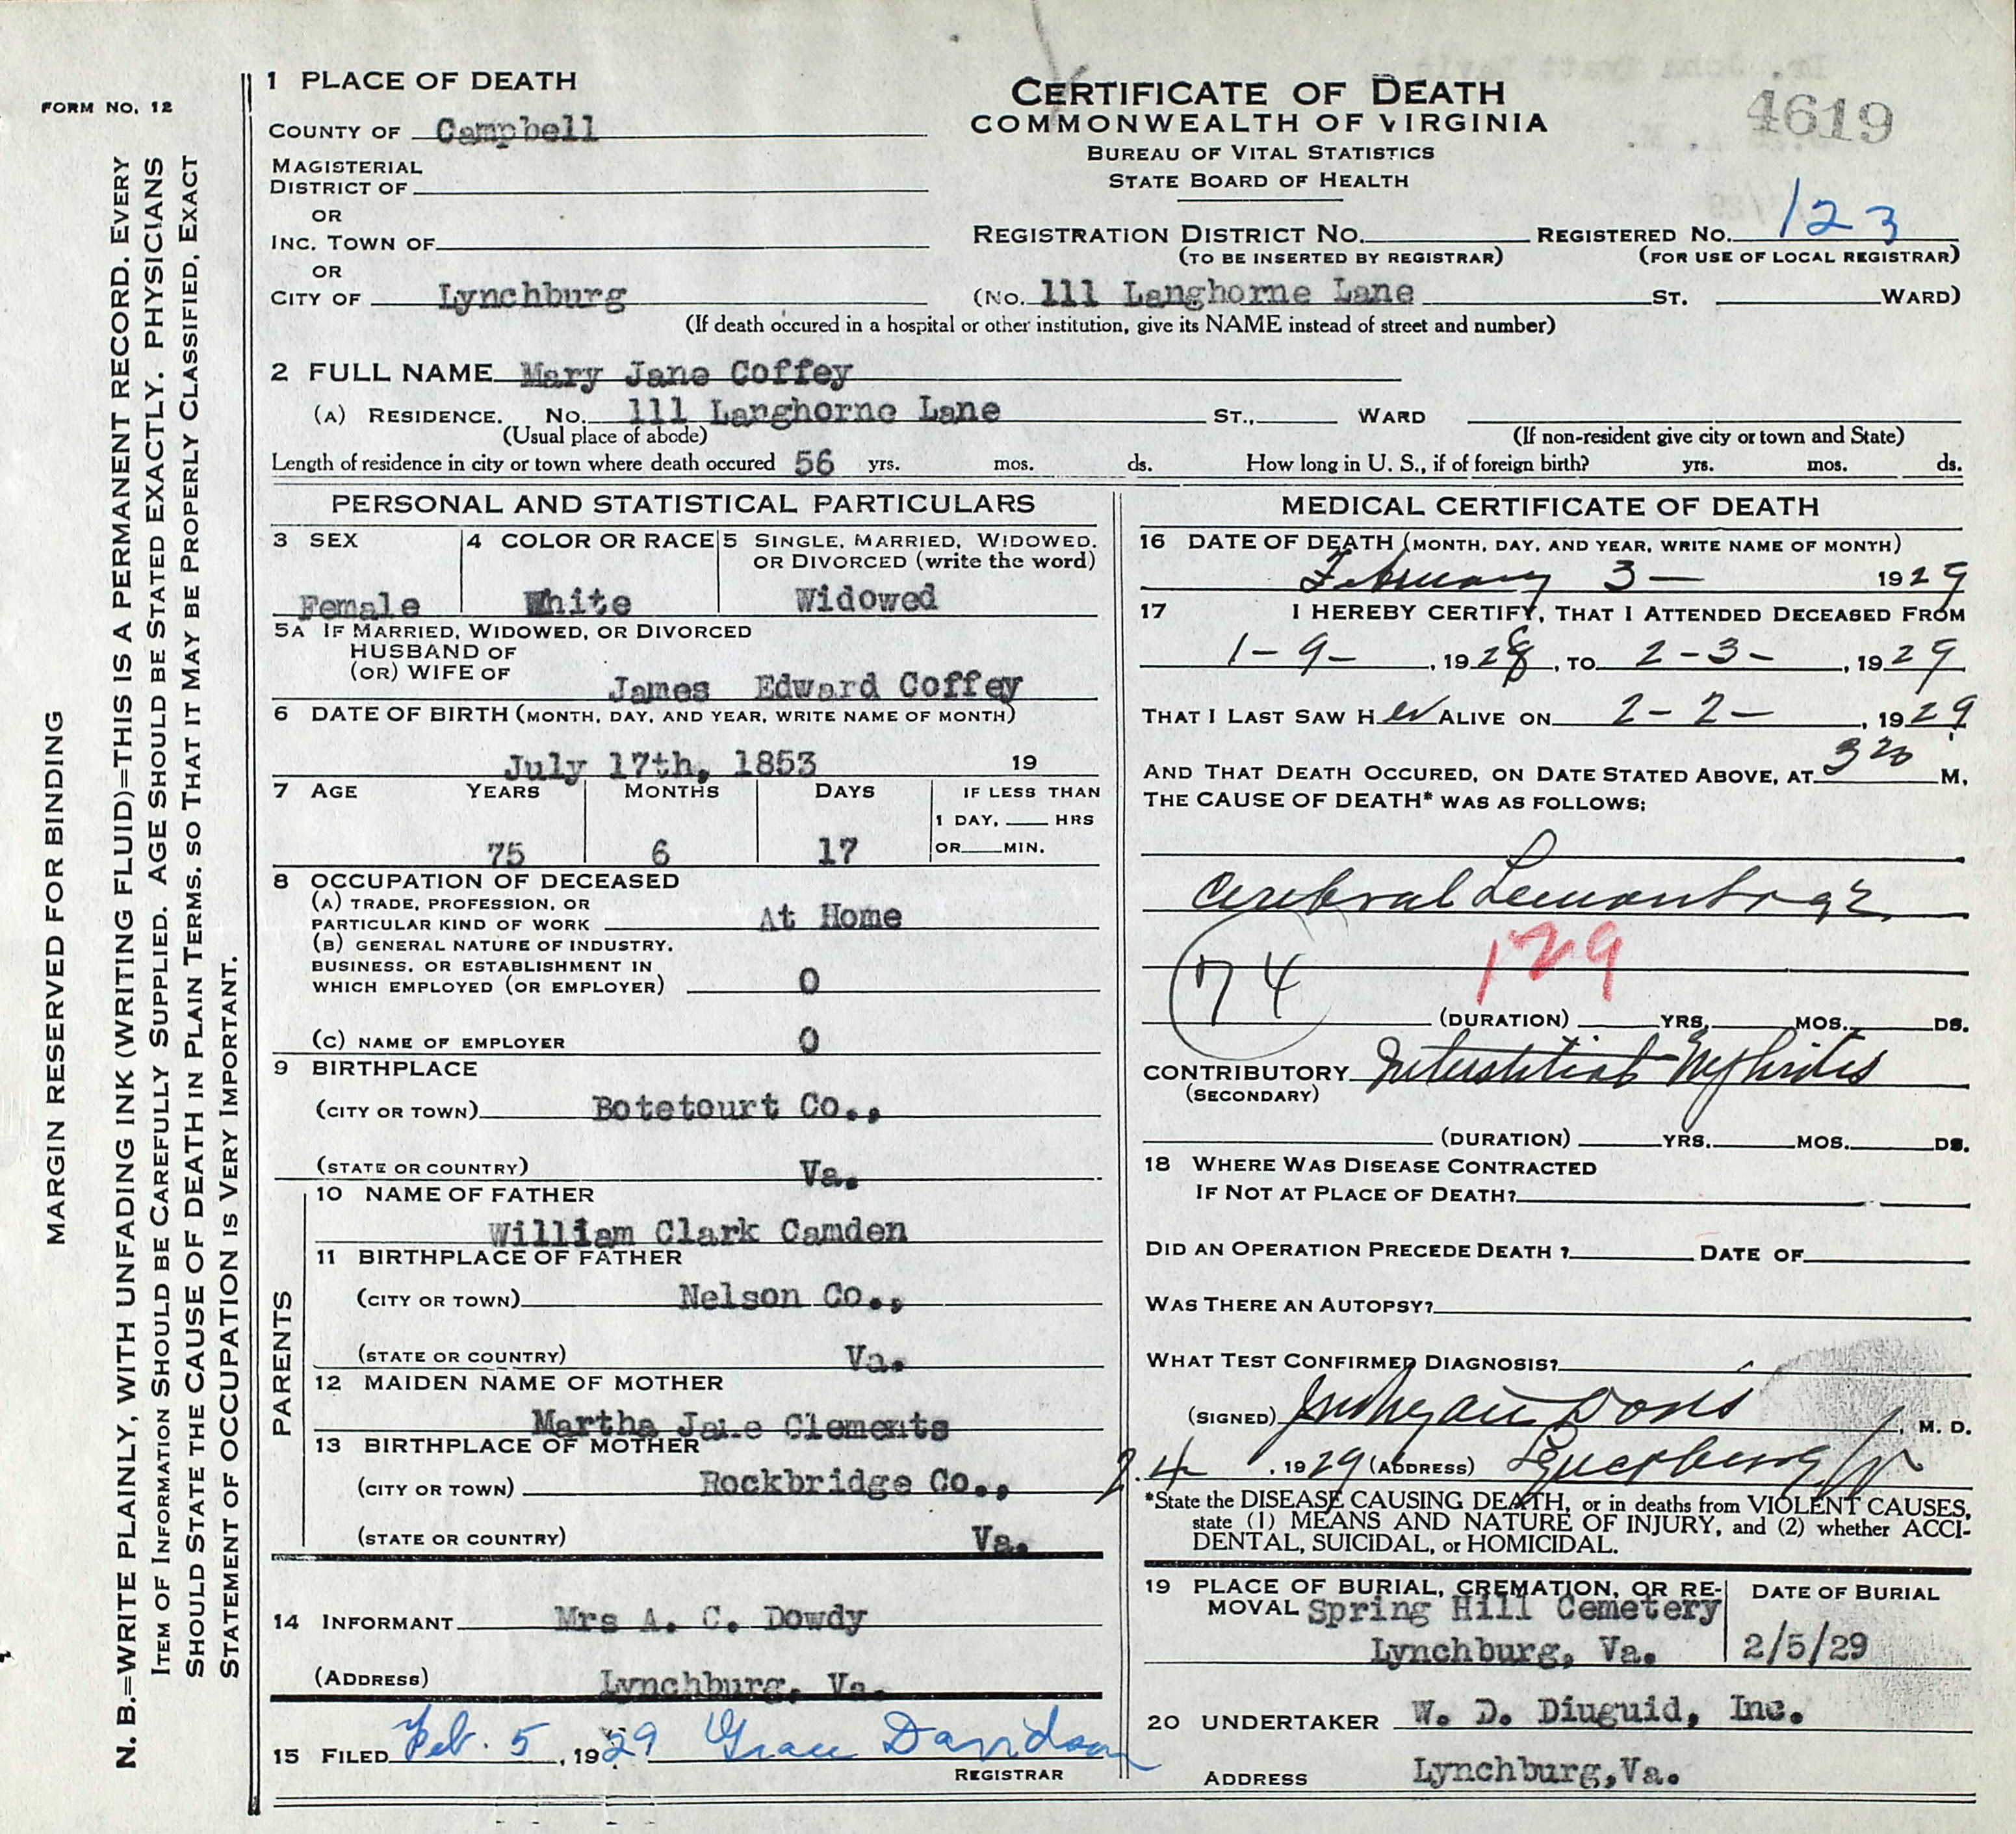 FORM NO. 12
MARGIN RESERVED FOR BINDING
N. B.=WRITE PLAINLY, WITH UNFADING INK (WRITING FLUID)=THIS IS A PERMANENT RECORD. EVERY
ITEM OF INFORMATION SHOULD BE CAREFULLY SUPPLIED. AGE SHOULD BE STATED EXACTLY. PHYSICIANS
SHOULD STATE THE CAUSE OF DEATH IN PLAIN TERMS, SO THAT IT MAY BE PROPERLY CLASSIFIED. EXACT
STATEMENT OF OCCUPATION IS VERY IMPORTANT.
1 PLACE OF DEATH
COUNTY OF Campbell
MAGISTERIAL
DISTRICT OF
OR
INC. TOWN OF
OR
CITY OF Lynchburg
CERTIFICATE OF DEATH
COMMONWEALTH OF VIRGINIA
BUREAU OF VITAL STATISTICS
STATE BOARD OF HEALTH
4619
REGISTRATION DISTRICT NO. REGISTERED NO. 123
(TO BE INSERTED BY REGISTRAR) (FOR USE OF LOCAL REGISTRAR)
(NO. 111 Langhorne Lane ST. WARD)
(If death occured in a hospital or other institution, give its NAME instead of street and number)
2 FULL NAME Mary Jane Coffey
(A) RESIDENCE. NO. 111 Langhorne Lane ST., WARD
(Usual place of abode) (If non-resident give city or town and State)
Length of residence in city or town where death occured 56 yrs. mos. ds. How long in U. S., if of foreign birth? yrs. mos. ds.
PERSONAL AND STATISTICAL PARTICULARS
3 SEX 4 COLOR OR RACE 5 SINGLE, MARRIED, WIDOWED,
OR DIVORCED (write the word)
Female White Widowed
5A IF MARRIED, WIDOWED, OR DIVORCED
HUSBAND OF
(OR) WIFE OF James Edward Coffey
6 DATE OF BIRTH (MONTH, DAY, AND YEAR, WRITE NAME OF MONTH)
July 17th, 1853 19
7 AGE YEARS MONTHS DAYS IF LESS THAN
1 DAY, HRS
75 6 17 OR MIN.
8 OCCUPATION OF DECEASED
(A) TRADE, PROFESSION, OR
PARTICULAR KIND OF WORK At Home
(B) GENERAL NATURE OF INDUSTRY,
BUSINESS, OR ESTABLISHMENT IN
WHICH EMPLOYED (OR EMPLOYER) 0
(C) NAME OF EMPLOYER 0
9 BIRTHPLACE
(CITY OR TOWN) Botetourt Co.,
(STATE OR COUNTRY) Va.
PARENTS
10 NAME OF FATHER
William Clark Camden
11 BIRTHPLACE OF FATHER
(CITY OR TOWN) Nelson Co.,
(STATE OR COUNTRY) Va.
12 MAIDEN NAME OF MOTHER
Martha Jane Clements
13 BIRTHPLACE OF MOTHER
(CITY OR TOWN) Rockbridge Co.,
(STATE OR COUNTRY) Va.
14 INFORMANT Mrs A. C. Dowdy
(ADDRESS) Lynchburg, Va.
15 FILED Feb. 5, 1929 Grace Davidson
REGISTRAR
MEDICAL CERTIFICATE OF DEATH
16 DATE OF DEATH (MONTH, DAY, AND YEAR, WRITE NAME OF MONTH)
February 3- 1929
17 I HEREBY CERTIFY, THAT I ATTENDED DECEASED FROM
1-9-, 1928, TO 2-3-, 1929
THAT I LAST SAW HER ALIVE ON 2-2-, 1929
AND THAT DEATH OCCURED, ON DATE STATED ABOVE, AT 3 20 M.
THE CAUSE OF DEATH* WAS AS FOLLOWS:
Cerebral Hemorrhage
74 129
(DURATION) YRS. MOS. DS.
CONTRIBUTORY Interstitial Nephritis
(SECONDARY)
(DURATION) YRS. MOS. DS.
18 WHERE WAS DISEASE CONTRACTED
IF NOT AT PLACE OF DEATH?
DID AN OPERATION PRECEDE DEATH ? DATE OF
WAS THERE AN AUTOPSY?
WHAT TEST CONFIRMED DIAGNOSIS?
(SIGNED) M. D.
2.4, 1929 (ADDRESS) Lynchburg Va
*State the DISEASE CAUSING DEATH, or in deaths from VIOLENT CAUSES,
state (1) MEANS AND NATURE OF INJURY, and (2) whether ACCI-
DENTAL, SUICIDAL, or HOMICIDAL.
19 PLACE OF BURIAL, CREMATION, OR RE- DATE OF BURIAL
MOVAL Spring Hill Cemetery
Lynchburg, Va. 2/5/29
20 UNDERTAKER W. D. Diuguid, Inc.
ADDRESS Lynchburg,Va.